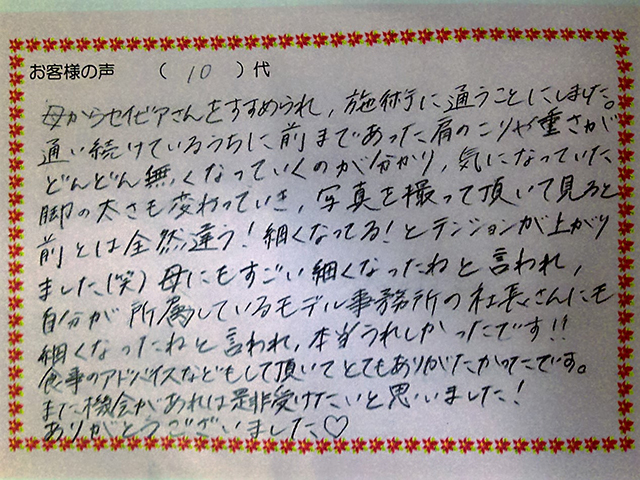 お客様の声 ( 10 )代
母からセイビアさんをすすめられ、施術に通うことにしました。
通い続けているうちに前まであった肩のこりや重さが
どんどん無くなっていくのが分かり、気になっていた
脚の太さも変わっていき、写真を撮って頂いて見ると
前とは全然違う!細くなってる!とテンションが上がり
ました(笑)母にもすごい細くなったねと言われ、
自分が所属しているモデル事務所の社長さんにも
細くなったねと言われ、本当うれしかったです!!
食事のアドバイスなどもして頂いてとてもありがたかったです。
また機会があれば是非受けたいと思いました!
ありがとうございました♡